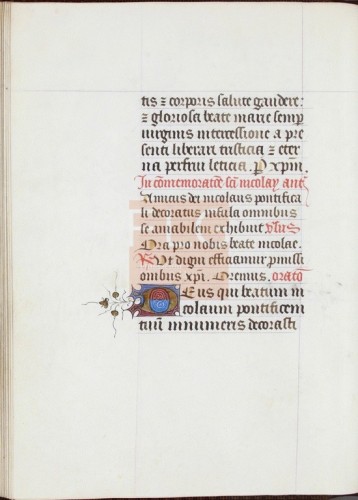 tis ⁊ corporis salute gaudere:
⁊ gloriosa beate marie semp̲
uirginis intercessione a pre
senti liberari tristicia ⁊ eter
na perfrui leticia. P xpm̄.
In cōmemoratōe sc̄i nicolay ant̄
Amicus dei nicolaus pontifica
li decoratus infula omnibus
se amabilem exhibuit v̄sus
Ora pro nobis beate nicolae.
R̄ Ut digni efficiamur p̲missi
onibus xp̄i. Oremus. oratō
Deus qui beatum ni
colaum pontificem
tuū innumeris decorasti